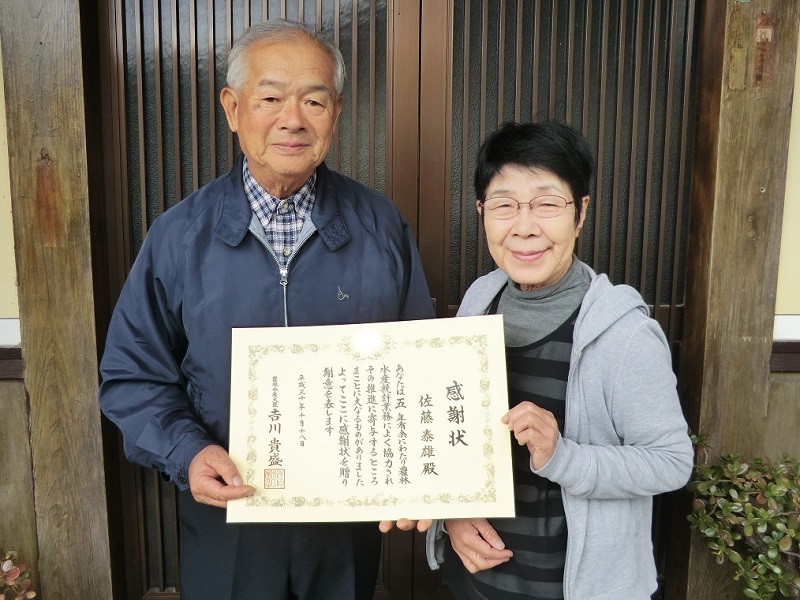 感謝状
佐藤泰雄殿
あなたは五年有余にわたり農林
水産統計業務によく協力され
その推進に寄与するところ
まことに大なるものがありました
よってここに感謝状を贈り
謝意を表します
平成三十年十月十八日
農林水産大臣 吉川貴盛